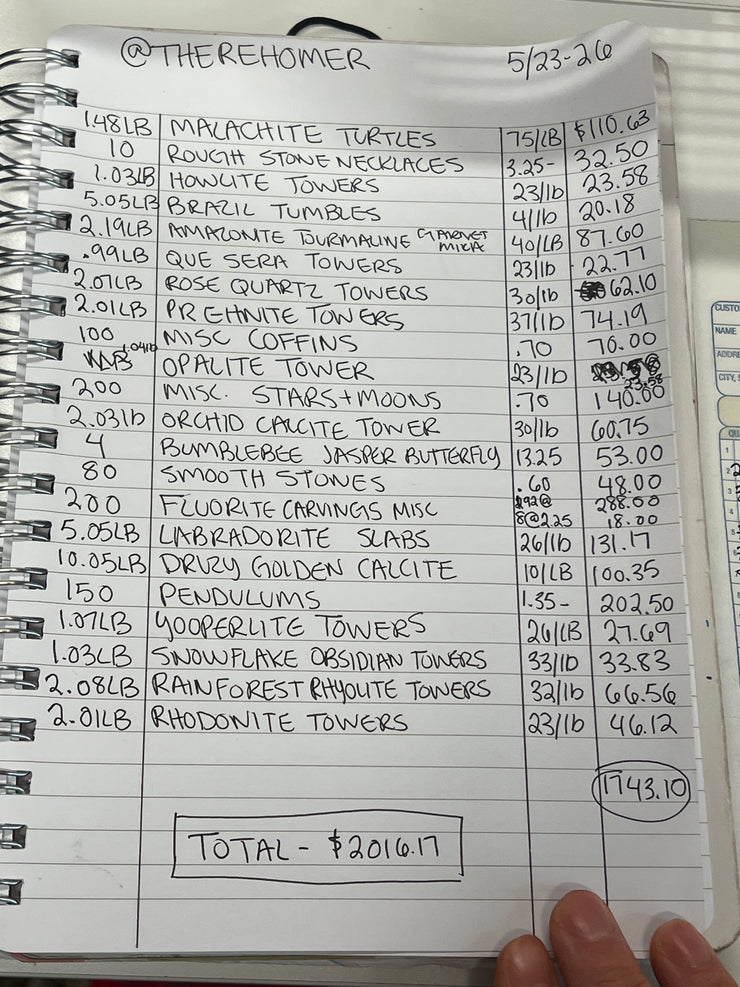 @THEREHOMER 5/23-26
1.48LB MALACHITE TURTLES 75/LB $110.63
10 ROUGH STONE NECKLACES 3.25- 32.50
1.03LB HOWLITE TOWERS 23/lb 23.58
5.05LB BRAZIL TUMBLES 4/lb 20.18
2.19LB AMAZONITE TOURMALINE GARNET MICA 40/LB 87.60
.99LB QUE SERA TOWERS 23/lb 22.77
2.07LB ROSE QUARTZ TOWERS 30/lb 62.10
2.01LB PREHNITE TOWERS 37/lb 74.19
100 MISC COFFINS .70 70.00
1.04lb OPALITE TOWER 23/lb 23.58
200 MISC. STARS+MOONS .70 140.00
2.03lb ORCHID CALCITE TOWER 30/lb 60.75
4 BUMBLEBEE JASPER BUTTERFLY 13.25 53.00
80 SMOOTH STONES .60 48.00
200 FLUORITE CARVINGS MISC 192@ 288.00
8@2.25 18.00
5.05LB LABRADORITE SLABS 26/lb 131.17
10.05LB DRUZY GOLDEN CALCITE 10/LB 100.35
150 PENDULUMS 1.35- 202.50
1.07LB YOOPERLITE TOWERS 26/LB 27.69
1.03LB SNOWFLAKE OBSIDIAN TOWERS 33/lb 33.83
2.08LB RAINFOREST RHYOLITE TOWERS 32/lb 66.56
2.01LB RHODONITE TOWERS 23/lb 46.12
1743.10
TOTAL - $2016.17
CUSTO
NAME
ADDRE
CITY, S
QU